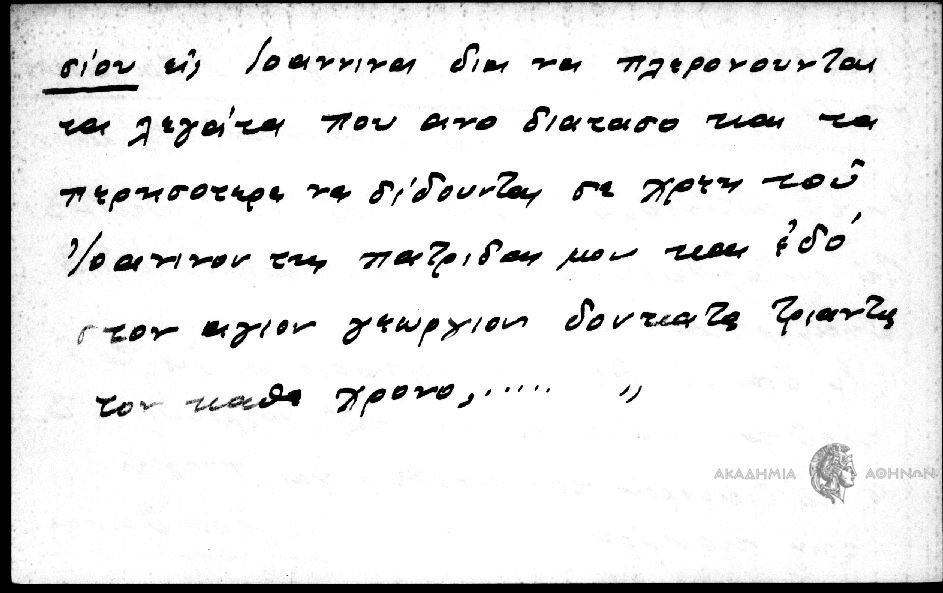 σίου εἰς Ιοαννινα δια να πλερονουνται
τα λεγάτα που ανο διατασο και τα
περησοτερα να δίδουνται σε χρεη τοῦ
Ἰοανινον τη πατριδα μου και ἐδό
στον αγιον γεωργιον δουκατα τριαντα
τον καθε χρονο,..... ,,
ΑΚΑΔΗΜΙΑ ΑΘΗΝΩΝ